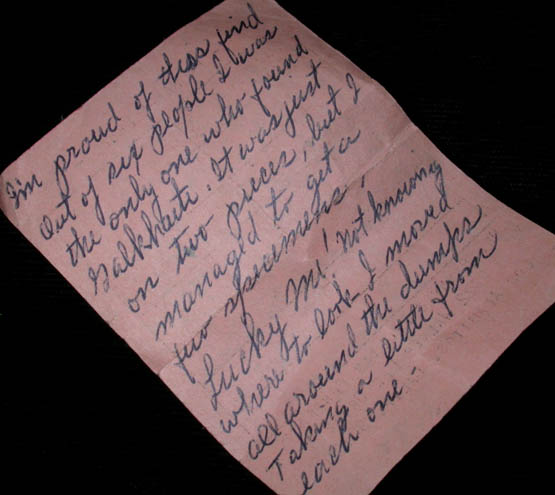 I'm proud of this find
Out of six people I was
the only one who found
Galkhaite. It was just
on two pieces, but I
managed to get a
few specemens,
Lucky Me! Not knowing
where to look I moved
all around the dumps
Taking a little from
each one-